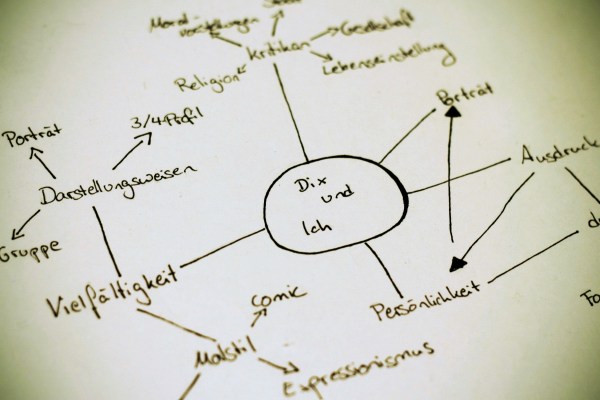 Moral-
vorstellungen
Gesellschaft
Kritiken
Lebenseinstellung
Religion
Porträt
3/4-Profil
Porträt
Darstellungsweisen
Ausdruck
Dix
und
Ich
Gruppe
Vielfältigkeit
Persönlichkeit
Comic
Malstil
Expressionismus